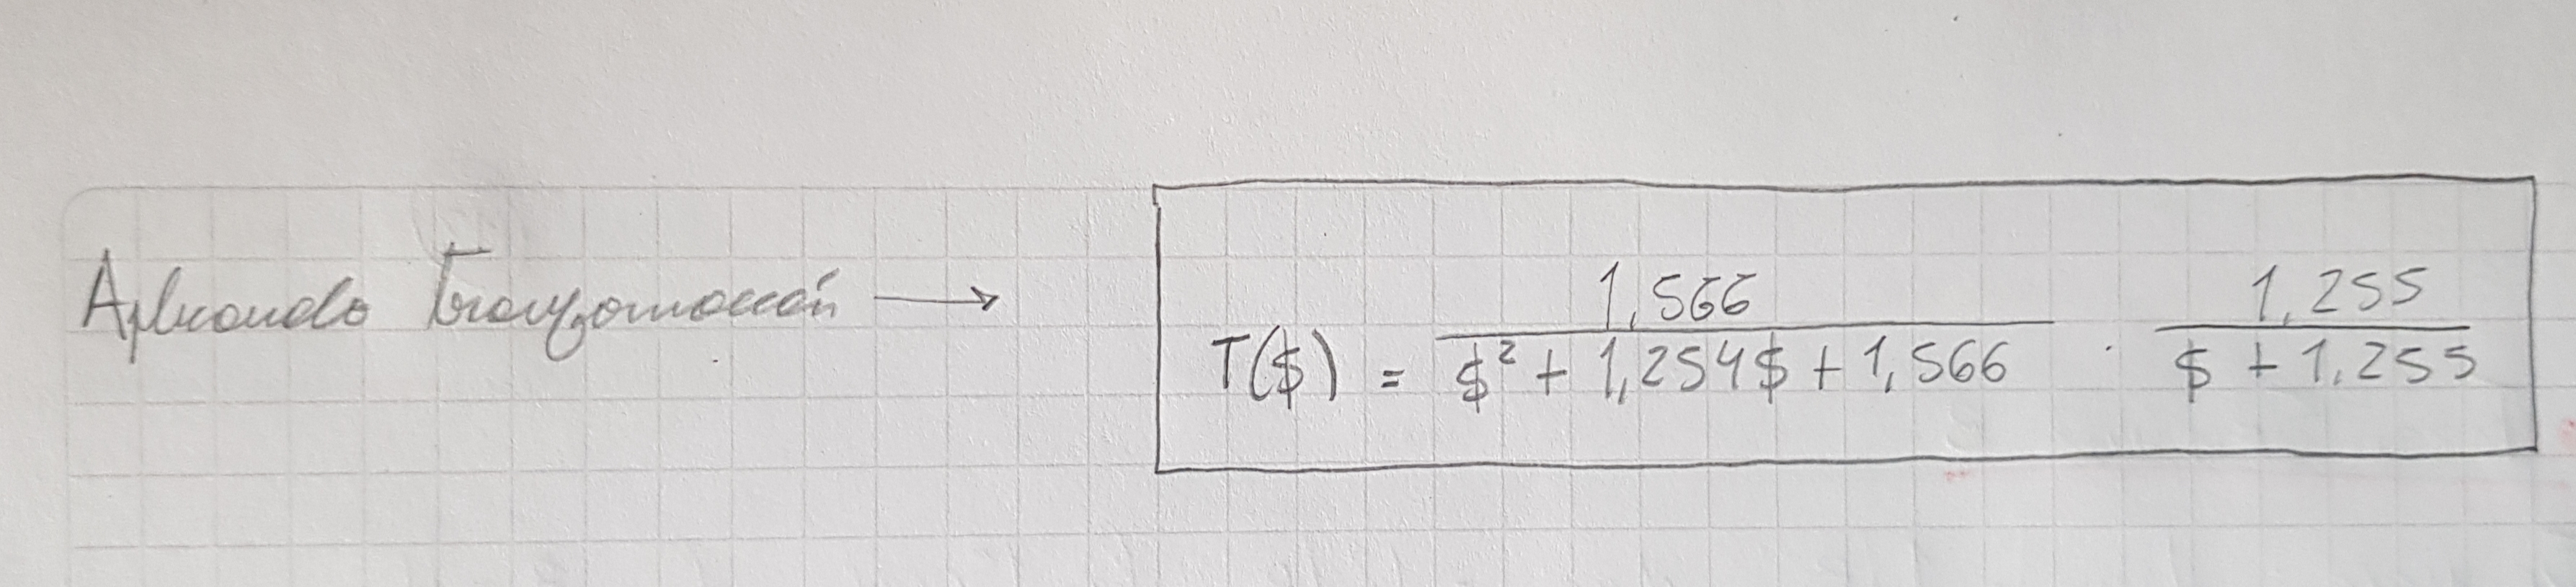 Aplicando Transformación → T($) = 1,566 / ($² + 1,254$ + 1,566) · 1,255 / ($ + 1,255)